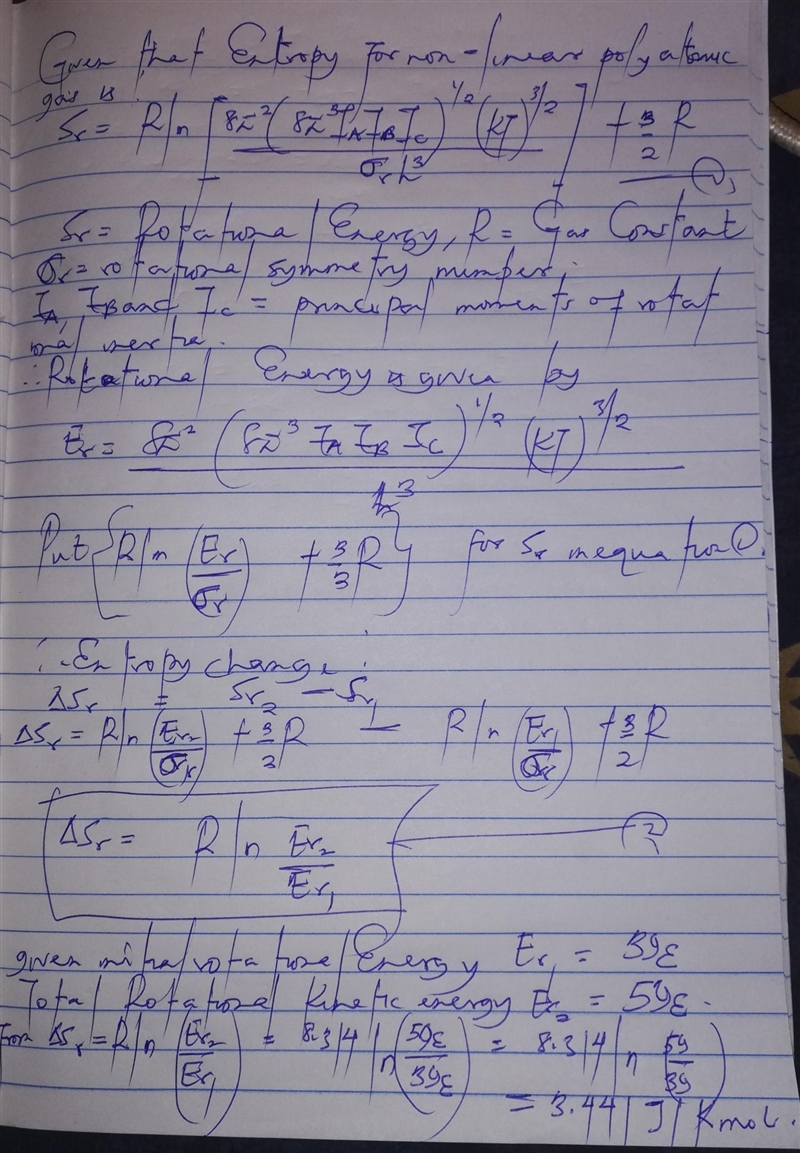 Given that Entropy for non-linear polyatomic
gas is
Sr = R ln [8π²(8π³IA IB IC)^1/2 (KT)^3/2 / σr h³] + 3/2 R — 1
Sr = Rotational Energy, R = Gas Constant
σr = rotational symmetry number,
IA, IB and IC = principal moments of rotat
ional inertia.
∴ Rotational Energy is given by
Er = 8π² (8π³ IA IB IC)^1/2 (KT)^3/2 / h³
Put {R ln (Er/σr) + 3/3 R} for Sr in equation 1.
∴ Entropy change:
ΔSr = Sr2 - Sr1
ΔSr = R ln (Er2/σr) + 3/2 R - R ln (Er1/σr) + 3/2 R
ΔSr = R ln Er2/Er1 — 2
given initial rotational Energy Er1 = 39ε
Total Rotational Kinetic energy Er2 = 59ε.
From ΔSr = R ln (Er2/Er1) = 8.314 ln (59ε/39ε) = 8.314 ln (59/39)
= 3.441 J/Kmol.